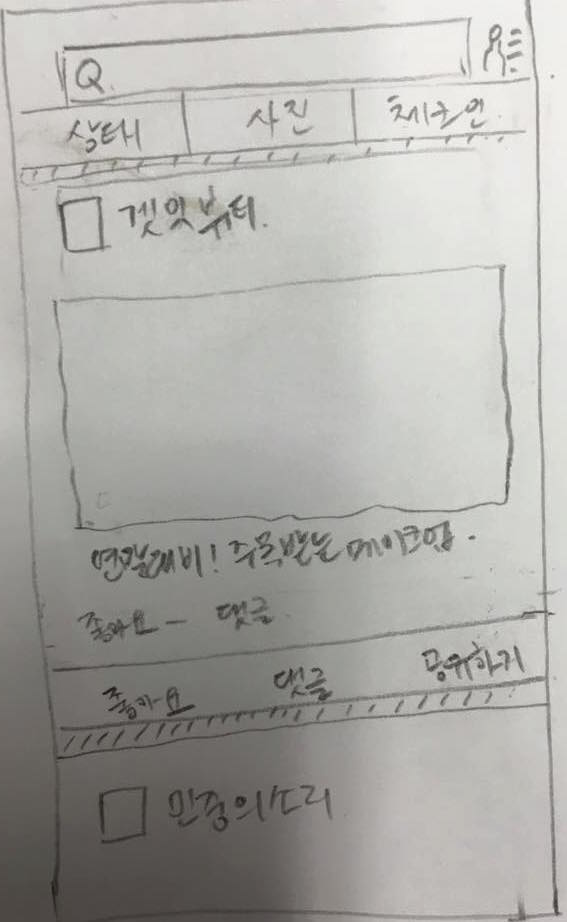 Q
상태 사진 체크인
겟잇뷰티.
연말대비! 주목받는 메이크업.
좋아요 - 댓글
좋아요 댓글 공유하기
민중의소리